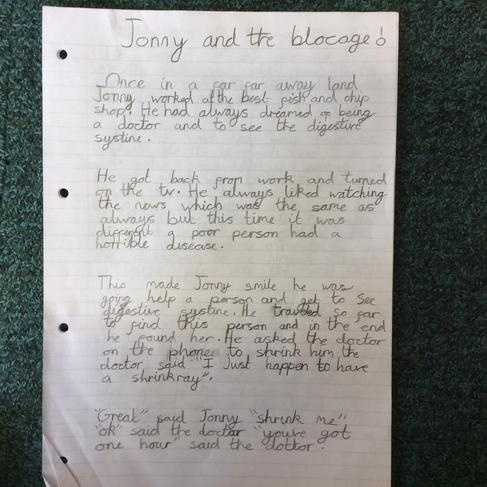 Jonny and the blocage!
Once in a far far away land
Jonny worked at the best fish and chip
shop. He had always dreamed of being
a doctor and to see the digestive
systine.
He got back from work and turned
on the tv. He always liked watching
the news which was the same as
always but this time it was
different a poor person had a
horrible disease.
This made Jonny smile he was
going help a person and get to see
digestive systine. He travled so far
to find this person and in the end
he found her. He asked the doctor
on the phone to shrink him the
doctor said "I just happen to have
a shrinkray".
"Great" said Jonny "shrink me"
"ok" said the doctor "you've got
one hour" said the doctor.